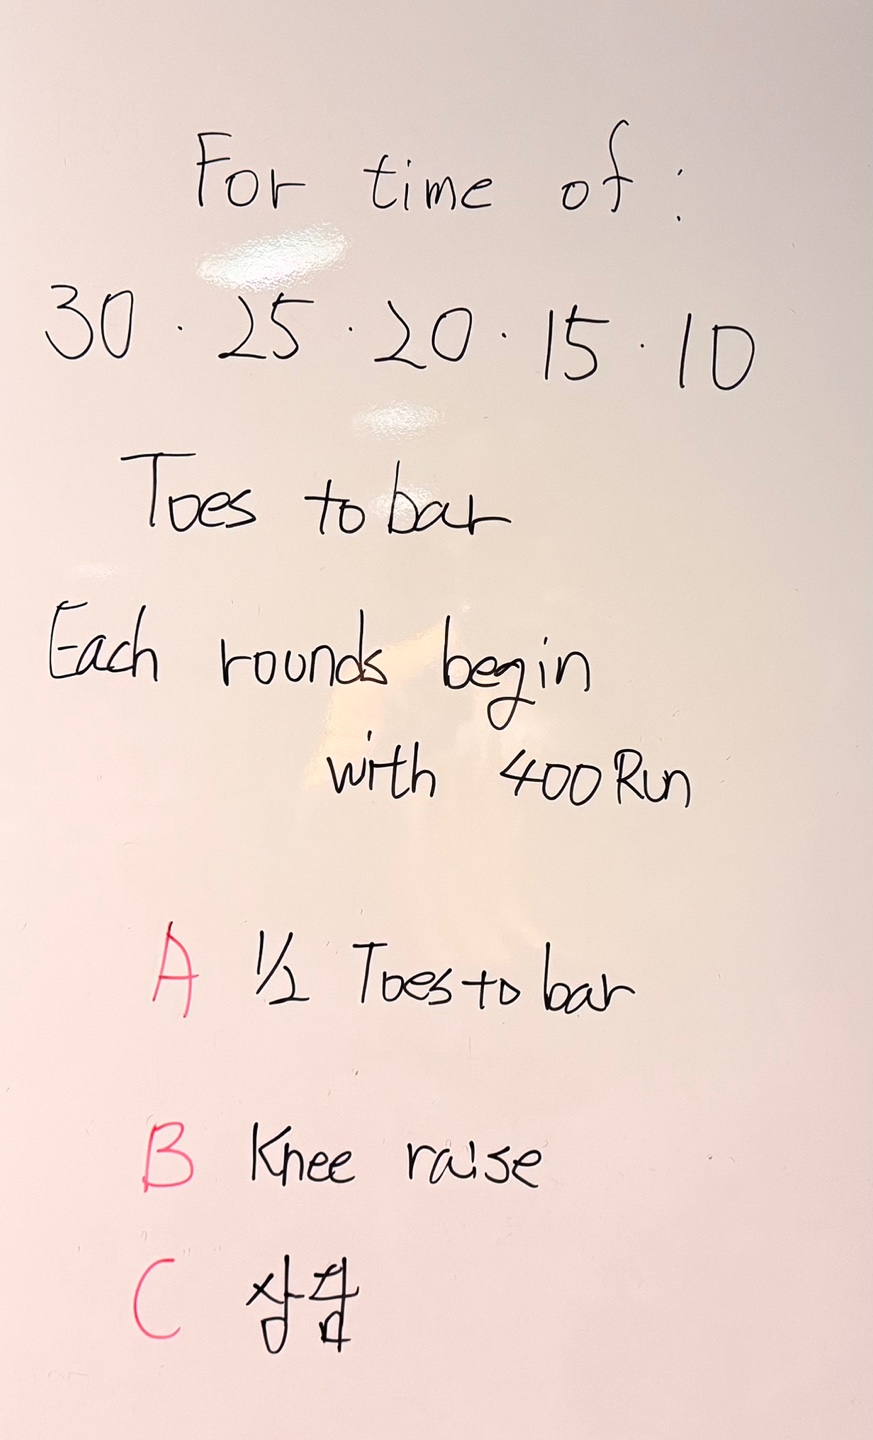 For time of :
30 · 25 · 20 · 15 · 10
Toes to bar
Each rounds begin
with 400 Run
A 1/2 Toes to bar
B Knee raise
C